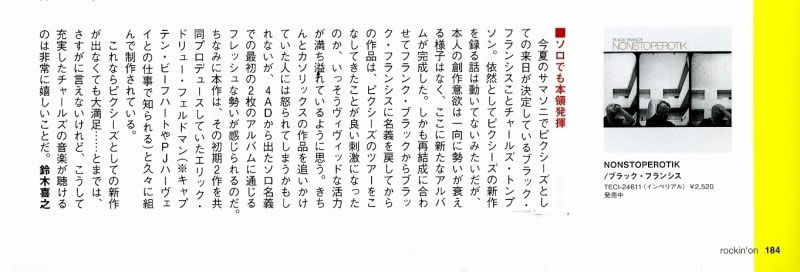 ■ソロでも本領発揮
　今夏のサマソニでピクシーズとし
ての来日が決定しているブラック・
フランシスことチャールズ・トンプ
ソン。依然としてピクシーズの新作
を録る話は動いてないみたいだが、
本人の創作意欲は一向に勢いが衰え
る様子はなく、ここに新たなアルバ
ムが完成した。しかも再結成に合わ
せてフランク・ブラックからブラッ
ク・フランシスに名義を戻してから
の作品は、ピクシーズのツアーをこ
なしてきたことが良い刺激になった
のか、いっそうヴィヴィッドな活力
が満ち溢れているように思う。きち
んとカソリックスの作品を追いかけ
ていた人には怒られてしまうかもし
れないが、4ADから出たソロ名義
での最初の2枚のアルバムに通じる
フレッシュな勢いが感じられるのだ。
ちなみに本作は、その初期2作を共
同プロデュースしていたエリック・
ドリュー・フェルドマン(※キャプ
テン・ビーフハートやPJハーヴェ
イとの仕事で知られる)と久々に組
んで制作されている。
　これならピクシーズとしての新作
が出なくても大満足……とまでは、
さすがに言えないけれど、こうして
充実したチャールズの音楽が聴ける
のは非常に嬉しいことだ。 鈴木喜之
BLACK FRANCIS
NONSTOPEROTIK
NONSTOPEROTIK
/ブラック・フランシス
TECI-24611(インペリアル) ¥2,520
発売中
rockin'on 184